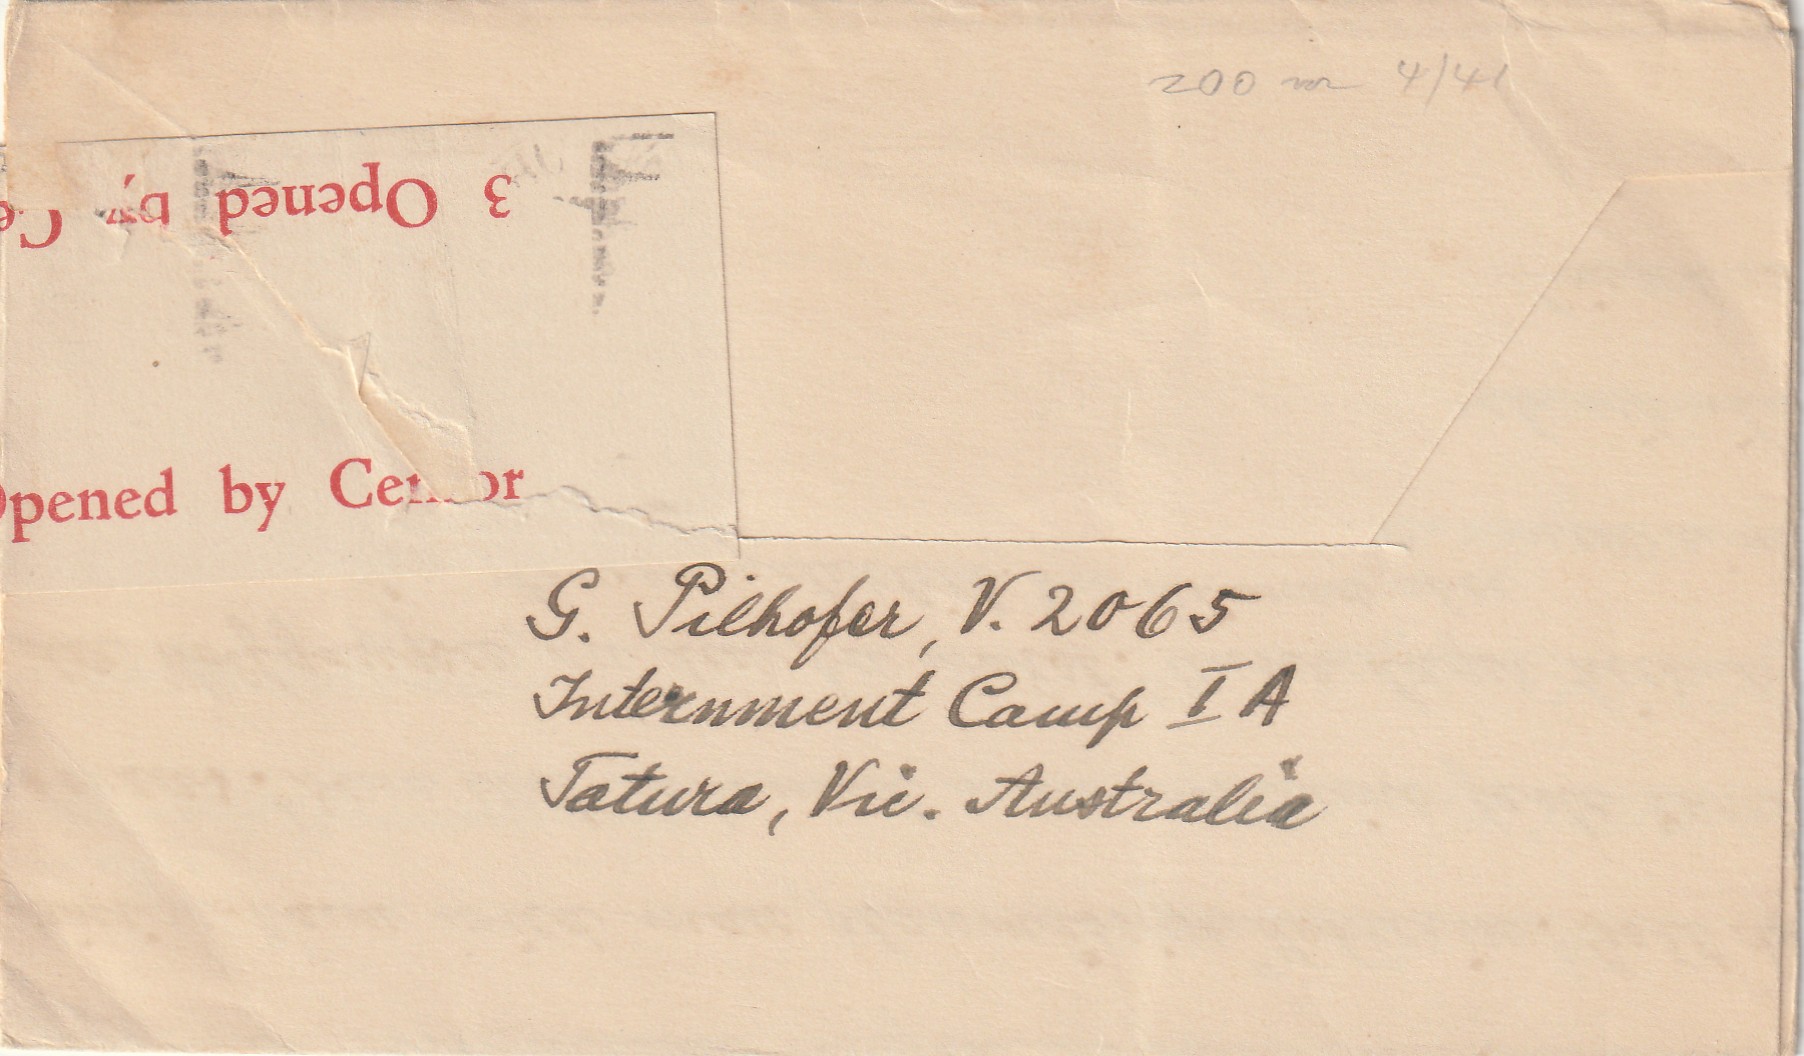 4/41
3 Opened by Ce
Opened by Censor
G. Pilhofer, V. 2065
Internment Camp I A
Tatura, Vic. Australia